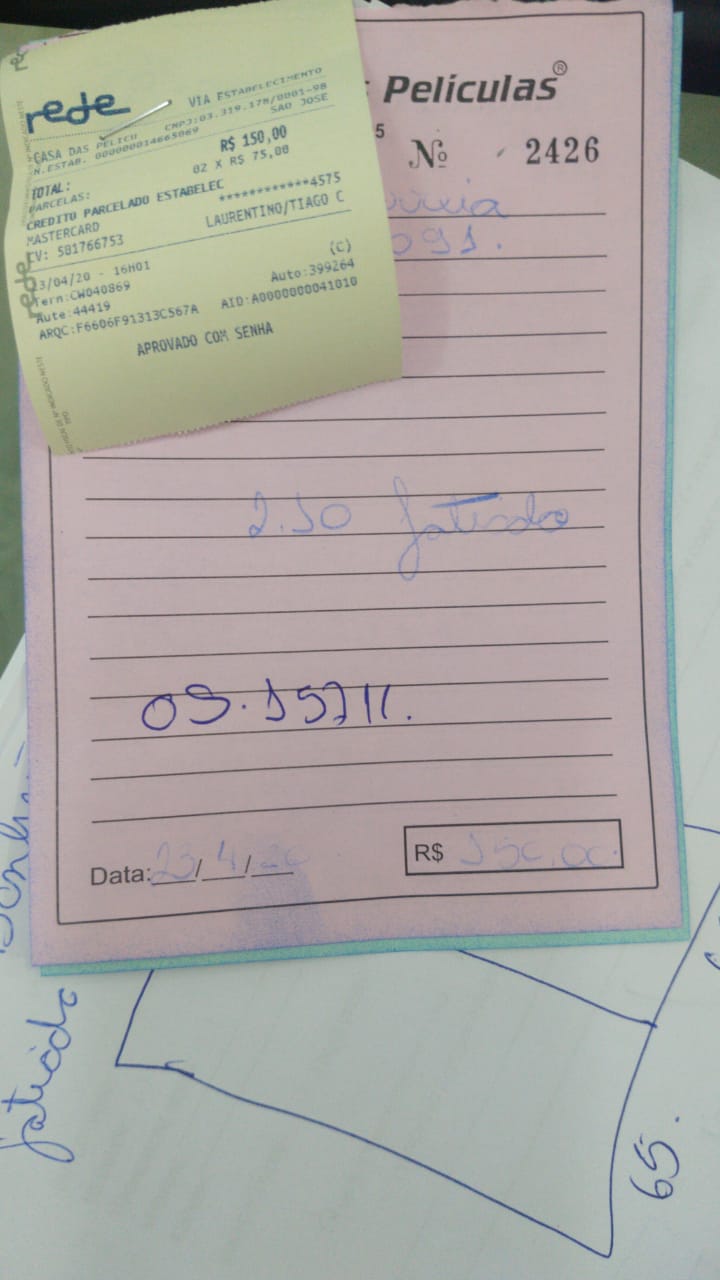 rede
VIA ESTABELECIMENTO
CASA DAS PELICU CNPJ:03.319.178/0001-98
N.ESTAB. 000000014665069 SAO JOSE
TOTAL: R$ 150,00
PARCELAS: 02 X R$ 75,00
CREDITO PARCELADO ESTABELEC
MASTERCARD ************4575
CV: 581766753 LAURENTINO/TIAGO C
23/04/20 - 16H01 (C)
Term:CW040869 Auto:399264
Aute:44419
ARQC:F6606F91313C567A AID:A0000000041010
APROVADO COM SENHA
rede
s Películas®
5
Nº 2426
091.
2.10 fatiado
OS.15711.
Data: 23/4/20
R$ 150,00.
fatiado
65.